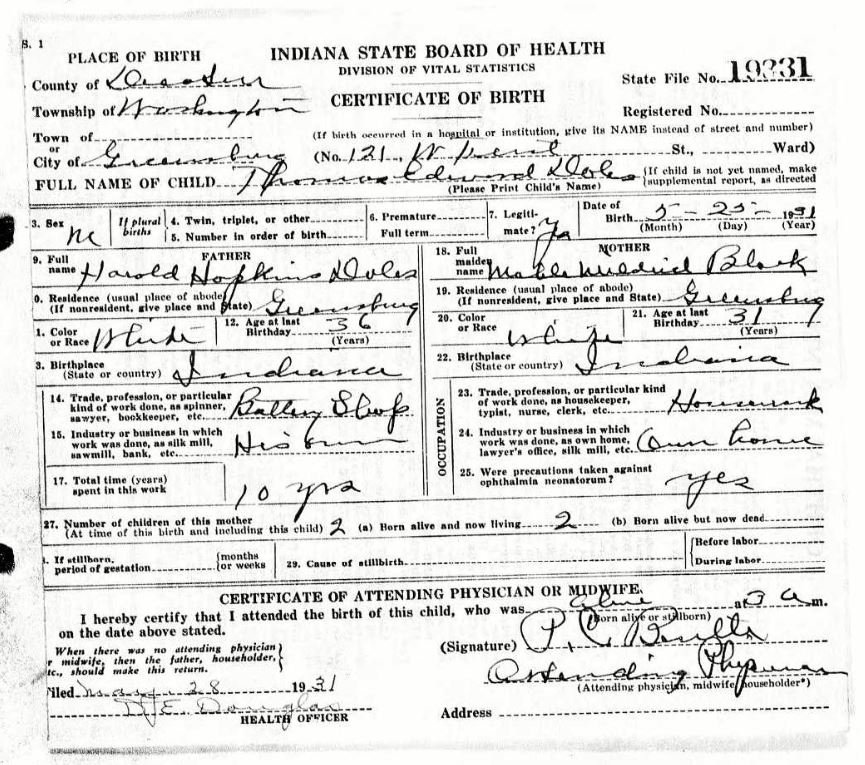 S. 1
PLACE OF BIRTH
INDIANA STATE BOARD OF HEALTH
DIVISION OF VITAL STATISTICS
CERTIFICATE OF BIRTH
State File No. 19331
Registered No.
County of Decatur
Township of Washington
Town of
or
City of Greensburg
(If birth occurred in a hospital or institution, give its NAME instead of street and number)
(No. 121, W St., Ward)
FULL NAME OF CHILD Thomas Edward Doles
(Please Print Child's Name)
{If child is not yet named, make
{supplemental report, as directed
3. Sex M
If plural births
4. Twin, triplet, or other
5. Number in order of birth
6. Premature
Full term
7. Legitimate? Yes
Date of Birth 5-25-1931
(Month) (Day) (Year)
FATHER
9. Full name Harold Hopkins Doles
0. Residence (usual place of abode)
(If nonresident, give place and State) Greensburg
1. Color or Race White
12. Age at last Birthday 36
(Years)
3. Birthplace
(State or country) Indiana
14. Trade, profession, or particular
kind of work done, as spinner,
sawyer, bookkeeper, etc. Battery Shop
15. Industry or business in which
work was done, as silk mill,
sawmill, bank, etc. His own
17. Total time (years)
spent in this work 10 yrs
MOTHER
18. Full maiden name Mildred Black
19. Residence (usual place of abode)
(If nonresident, give place and State) Greensburg
20. Color or Race White
21. Age at last Birthday 31
(Years)
22. Birthplace
(State or country) Indiana
OCCUPATION
23. Trade, profession, or particular kind
of work done, as housekeeper,
typist, nurse, clerk, etc. Housework
24. Industry or business in which
work was done, as own home,
lawyer's office, silk mill, etc. Own home
25. Were precautions taken against
ophthalmia neonatorum? yes
27. Number of children of this mother
(At time of this birth and including this child) 2 (a) Born alive and now living 2 (b) Born alive but now dead
. If stillborn,
period of gestation {months
or weeks
29. Cause of stillbirth
{Before labor
{During labor
CERTIFICATE OF ATTENDING PHYSICIAN OR MIDWIFE
I hereby certify that I attended the birth of this child, who was alive at 3 a m.
(Born alive or stillborn)
on the date above stated.
When there was no attending physician}
r midwife, then the father, householder,}
tc., should make this return.}
(Signature) P. C.
Attending Physician
(Attending physician, midwife, householder*)
iled May 28 1931
D. E. Douglas
HEALTH OFFICER
Address